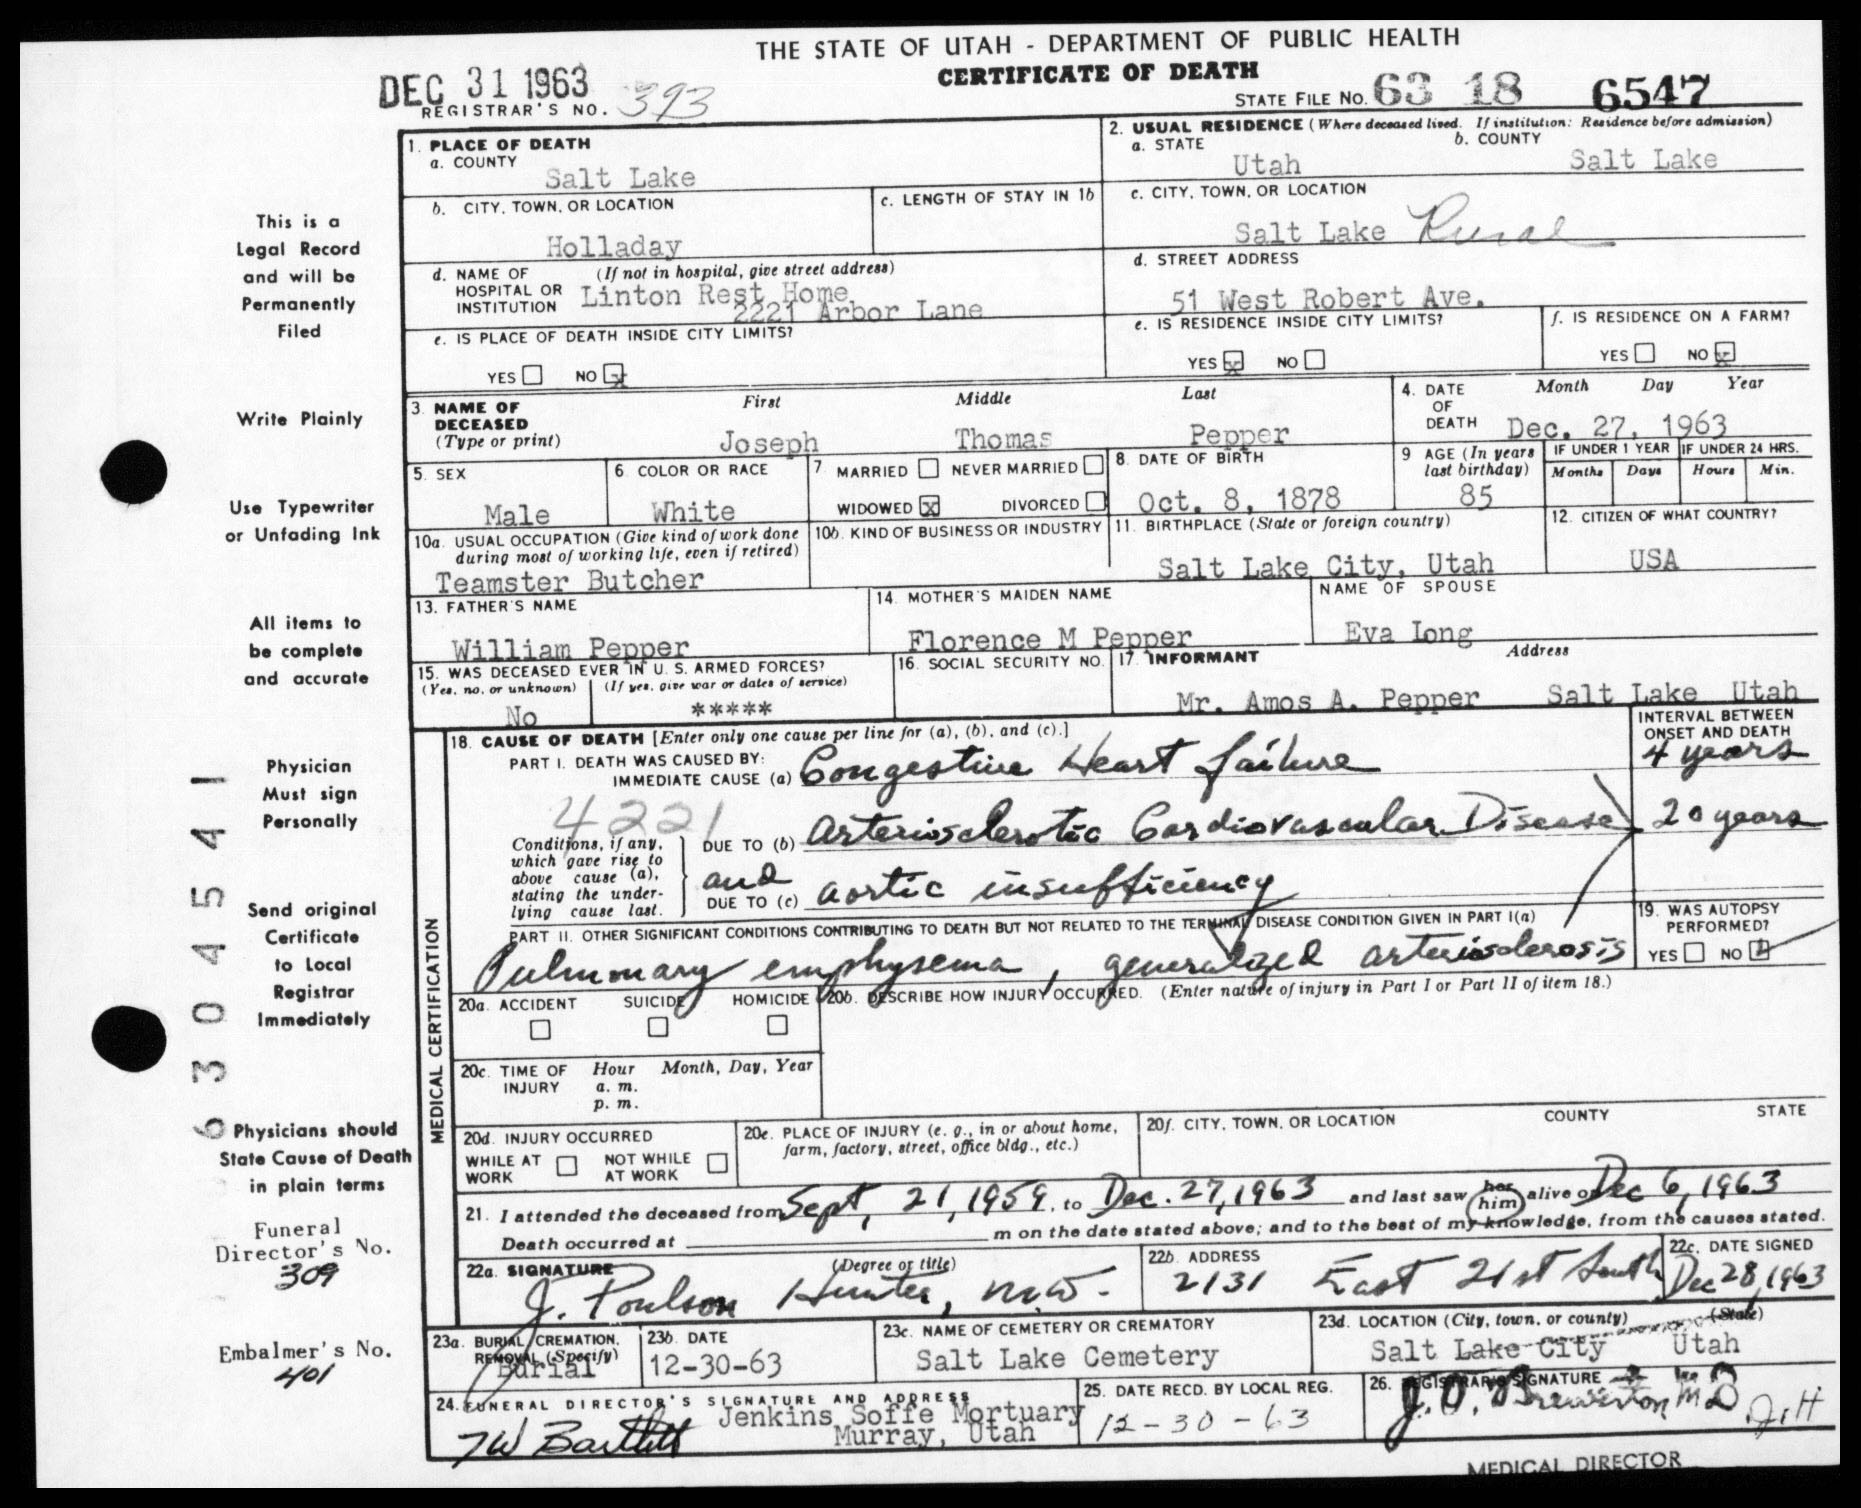 THE STATE OF UTAH - DEPARTMENT OF PUBLIC HEALTH
CERTIFICATE OF DEATH
DEC 31 1963
REGISTRAR'S NO. 393
STATE FILE NO. 63 18 6547
1. PLACE OF DEATH
a. COUNTY
Salt Lake
2. USUAL RESIDENCE (Where deceased lived. If institution: Residence before admission)
a. STATE
Utah
b. COUNTY
Salt Lake
b. CITY, TOWN, OR LOCATION
Holladay
c. LENGTH OF STAY IN 1b
c. CITY, TOWN, OR LOCATION
Salt Lake Rural
d. NAME OF HOSPITAL OR INSTITUTION
(If not in hospital, give street address)
Linton Rest Home
2221 Arbor Lane
d. STREET ADDRESS
51 West Robert Ave.
e. IS PLACE OF DEATH INSIDE CITY LIMITS?
YES NO x
e. IS RESIDENCE INSIDE CITY LIMITS?
YES x NO
f. IS RESIDENCE ON A FARM?
YES NO x
3. NAME OF DECEASED
(Type or print)
First Middle Last
Joseph Thomas Pepper
4. DATE OF DEATH
Month Day Year
Dec. 27, 1963
5. SEX
Male
6. COLOR OR RACE
White
7. MARRIED NEVER MARRIED
WIDOWED x DIVORCED
8. DATE OF BIRTH
Oct. 8, 1878
9 AGE (In years last birthday)
85
IF UNDER 1 YEAR
Months Days
IF UNDER 24 HRS.
Hours Min.
10a. USUAL OCCUPATION (Give kind of work done
during most of working life, even if retired)
Teamster Butcher
10b. KIND OF BUSINESS OR INDUSTRY
11. BIRTHPLACE (State or foreign country)
Salt Lake City, Utah
12. CITIZEN OF WHAT COUNTRY?
USA
13. FATHER'S NAME
William Pepper
14. MOTHER'S MAIDEN NAME
Florence M Pepper
NAME OF SPOUSE
Eva Long
15. WAS DECEASED EVER IN U. S. ARMED FORCES?
(Yes, no, or unknown) (If yes, give war or dates of service)
No *****
16. SOCIAL SECURITY NO.
17. INFORMANT Address
Mr. Amos A. Pepper Salt Lake Utah
MEDICAL CERTIFICATION
18. CAUSE OF DEATH [Enter only one cause per line for (a), (b), and (c).]
INTERVAL BETWEEN
ONSET AND DEATH
PART I. DEATH WAS CAUSED BY:
IMMEDIATE CAUSE (a) Congestive Heart failure
4 years
4221
Conditions, if any,
which gave rise to
above cause (a),
stating the under-
lying cause last.
DUE TO (b) Arteriosclerotic Cardiovascular Disease
20 years
and
DUE TO (c) aortic insufficiency
PART II. OTHER SIGNIFICANT CONDITIONS CONTRIBUTING TO DEATH BUT NOT RELATED TO THE TERMINAL DISEASE CONDITION GIVEN IN PART I(a)
Pulmonary emphysema, generalized arteriosclerosis
19. WAS AUTOPSY
PERFORMED?
YES NO
20a. ACCIDENT SUICIDE HOMICIDE
20b. DESCRIBE HOW INJURY OCCURRED. (Enter nature of injury in Part I or Part II of item 18.)
20c. TIME OF INJURY
Hour Month, Day, Year
a. m.
p. m.
20d. INJURY OCCURRED
WHILE AT WORK NOT WHILE AT WORK
20e. PLACE OF INJURY (e. g., in or about home,
farm, factory, street, office bldg., etc.)
20f. CITY, TOWN, OR LOCATION COUNTY STATE
21. I attended the deceased from Sept, 21, 1959, to Dec. 27, 1963 and last saw her him alive on Dec 6, 1963
Death occurred at m on the date stated above; and to the best of my knowledge, from the causes stated.
22a. SIGNATURE (Degree or title)
J. Poulson Hunter, M.D.
22b. ADDRESS
2131 East 21st South
22c. DATE SIGNED
Dec 28, 1963
23a. BURIAL, CREMATION,
REMOVAL (Specify)
Burial
23b. DATE
12-30-63
23c. NAME OF CEMETERY OR CREMATORY
Salt Lake Cemetery
23d. LOCATION (City, town, or county) (State)
Salt Lake City Utah
24. FUNERAL DIRECTOR'S SIGNATURE AND ADDRESS
Jenkins Soffe Mortuary
Murray, Utah
7W Bartlett
25. DATE RECD. BY LOCAL REG.
12-30-63
26. REGISTRAR'S SIGNATURE
J.H
MEDICAL DIRECTOR
This is a
Legal Record
and will be
Permanently
Filed
Write Plainly
Use Typewriter
or Unfading Ink
All items to
be complete
and accurate
Physician
Must sign
Personally
Send original
Certificate
to Local
Registrar
Immediately
Physicians should
State Cause of Death
in plain terms
Funeral
Director's No.
309
Embalmer's No.
401
63045541